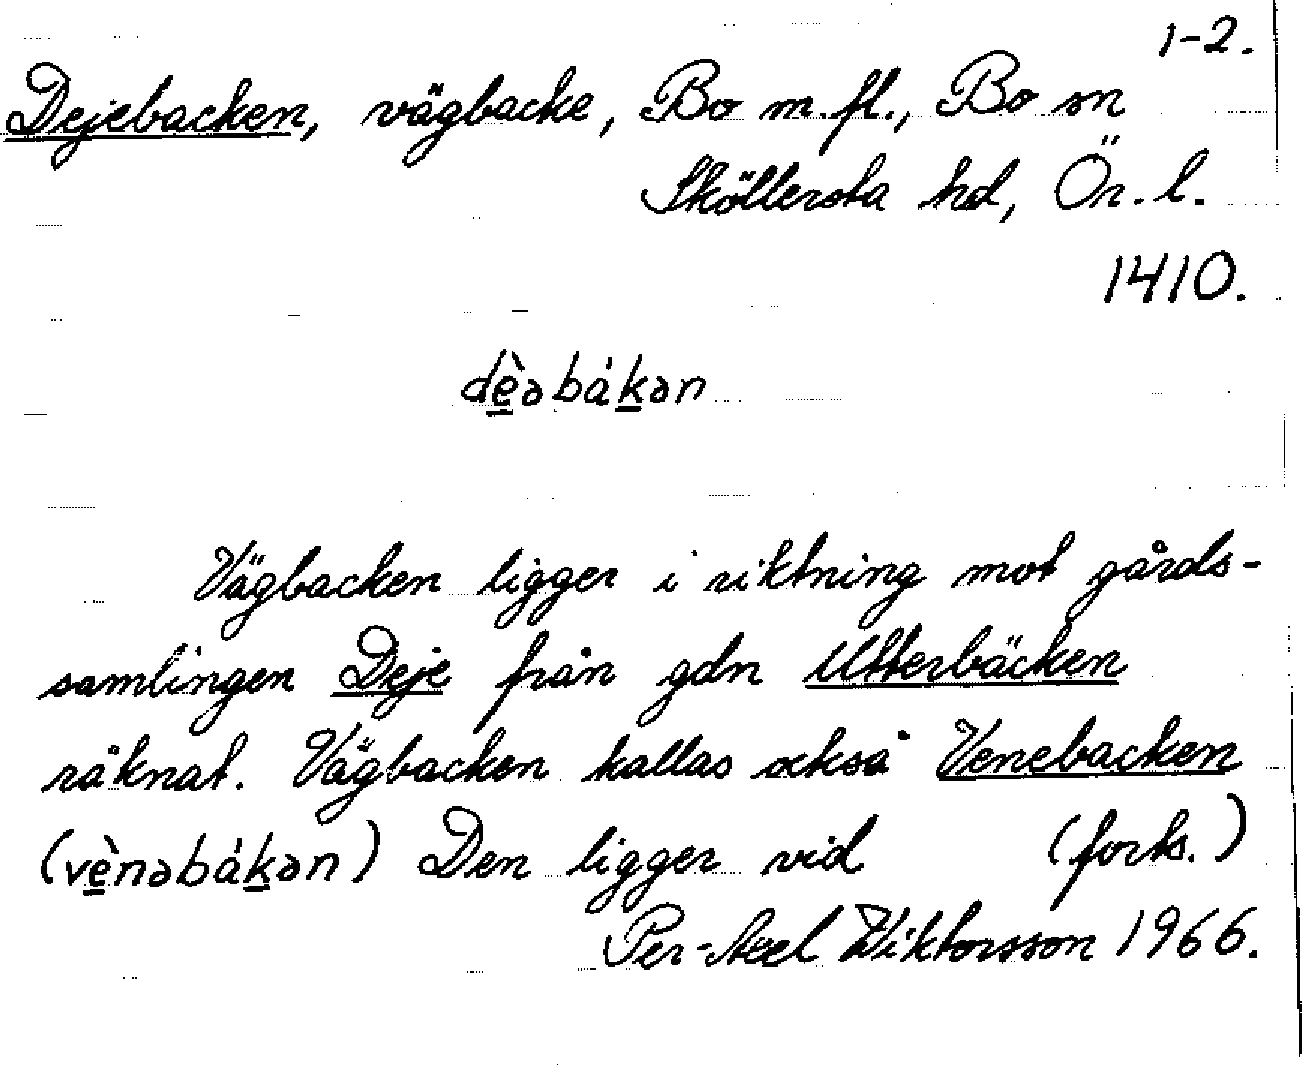 1-2.
Dejebacken, vägbacke, Bo m.fl., Bo sn
Sköllersta hd, Ör. l.
1410.
dè̲əbák̲ən
Vägbacken ligger i riktning mot gårds-
samlingen Deje från gdn Utterbäcken
räknat. Vägbacken kallas också Venebacken
(vè̲nəbák̲ən) Den ligger vid (forts.)
Per-Axel Wiktorsson 1966.